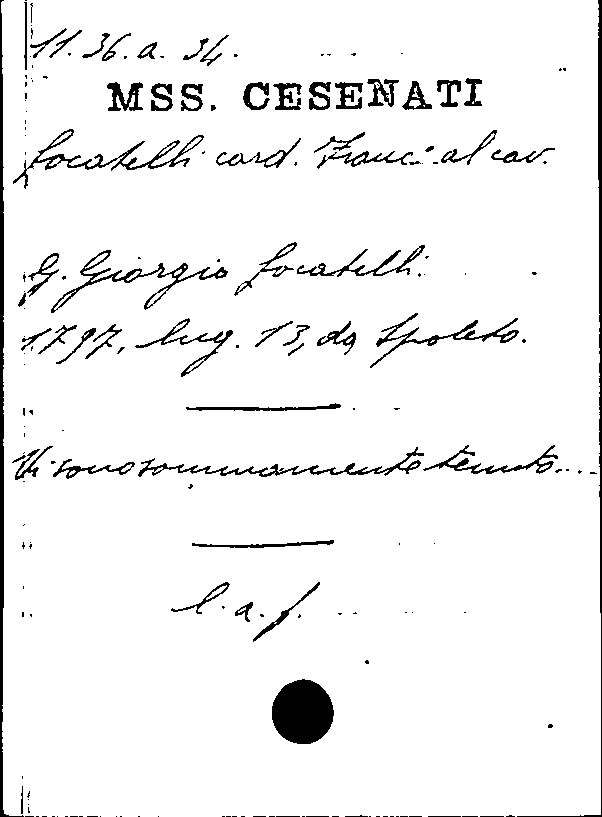 11. 36. a. 34.
MSS. CESENATI
Locatelli card. Franc. al cav.
G. Giorgio Locatelli.
1797, lug. 13, da Spoleto.
Vi sono sommamente tenuto....
l. a. f.